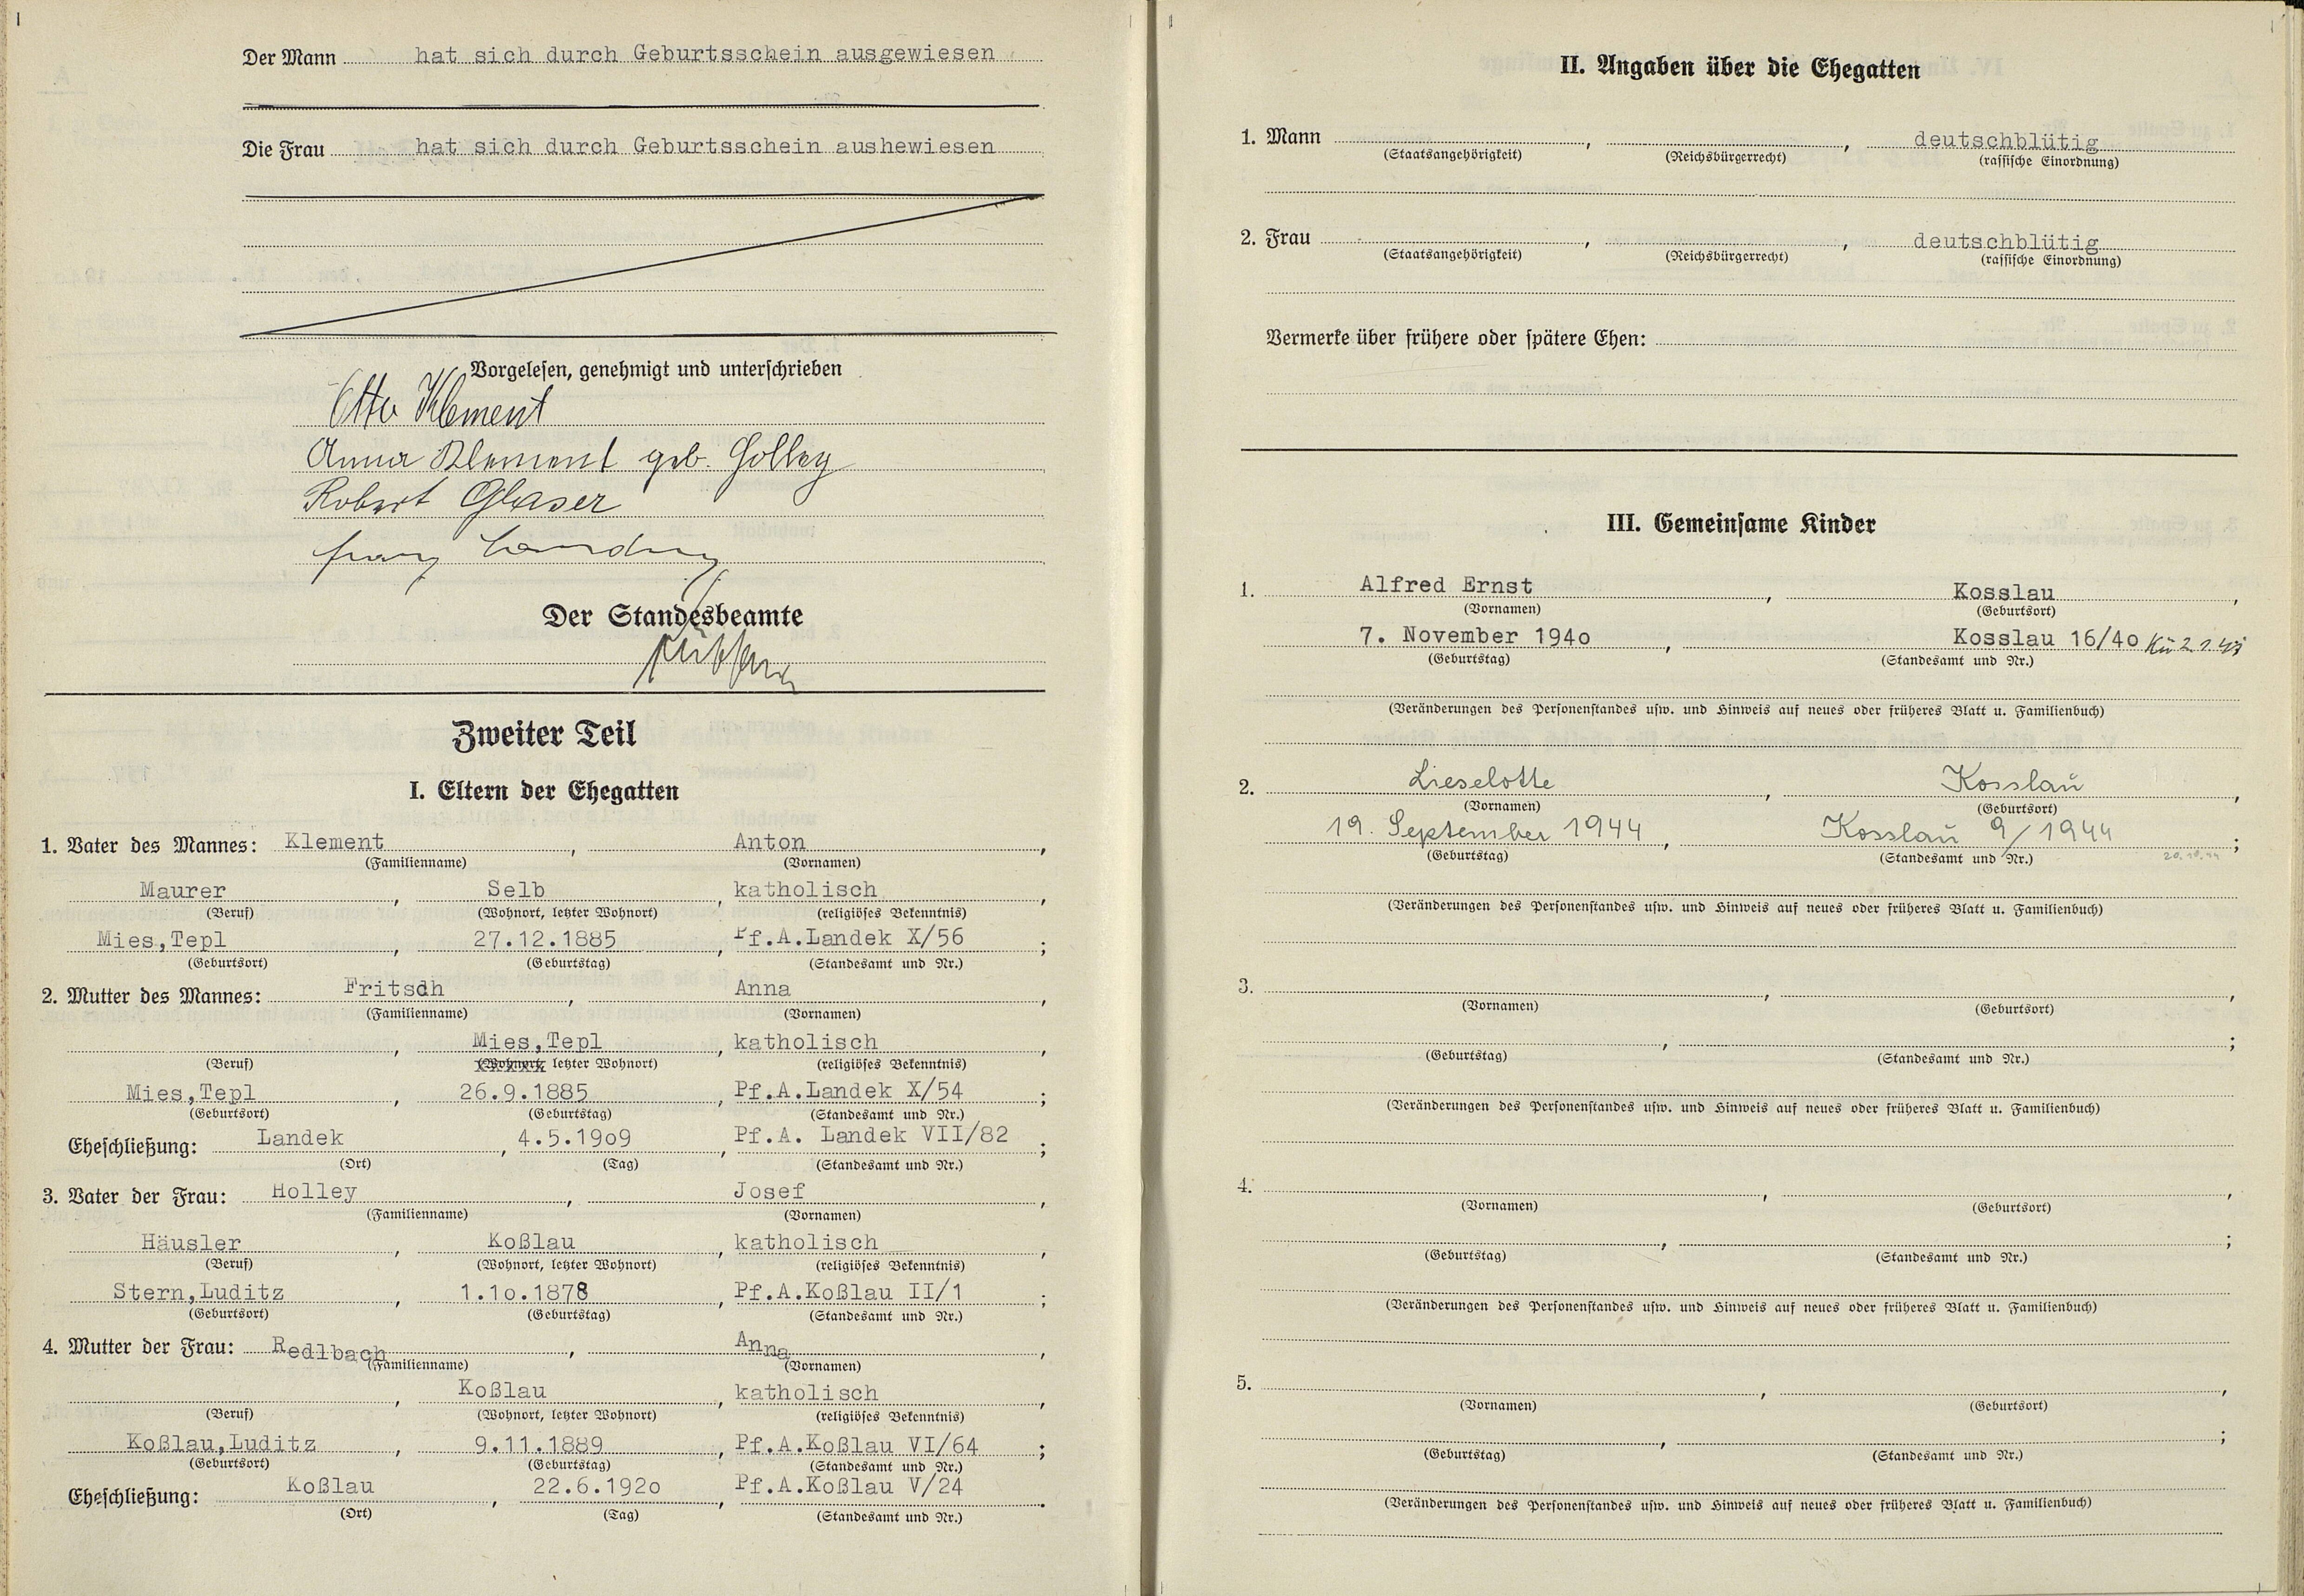 Der Mann hat sich durch Geburtsschein ausgewiesen
Die Frau hat sich durch Geburtsschein aushewiesen
Vorgelesen, genehmigt und unterschrieben
Otto Klement
Anna Klement geb. Holley
Robert Glaser
Franz
Der Standesbeamte
Zweiter Teil
I. Eltern der Ehegatten
1. Vater des Mannes: Klement , Anton ,
(Familienname) (Vornamen)
Maurer , Selb , katholisch ,
(Beruf) (Wohnort, letzter Wohnort) (religiöses Bekenntnis)
Mies,Tepl , 27.12.1885 , Pf.A.Landek X/56 ;
(Geburtsort) (Geburtstag) (Standesamt und Nr.)
2. Mutter des Mannes: Fritsch , Anna ,
(Familienname) (Vornamen)
, Mies,Tepl , katholisch ,
(Beruf) (Wohnort, letzter Wohnort) (religiöses Bekenntnis)
Mies,Tepl , 26.9.1885 , Pf.A.Landek X/54 ;
(Geburtsort) (Geburtstag) (Standesamt und Nr.)
Eheschließung: Landek , 4.5.19o9 , Pf.A. Landek VII/82 ;
(Ort) (Tag) (Standesamt und Nr.)
3. Vater der Frau: Holley , Josef ,
(Familienname) (Vornamen)
Häusler , Koßlau , katholisch ,
(Beruf) (Wohnort, letzter Wohnort) (religiöses Bekenntnis)
Stern,Luditz , 1.1o.1878 , Pf.A.Koßlau II/1 ;
(Geburtsort) (Geburtstag) (Standesamt und Nr.)
4. Mutter der Frau: Redlbach , Anna ,
(Familienname) (Vornamen)
, Koßlau , katholisch ,
(Beruf) (Wohnort, letzter Wohnort) (religiöses Bekenntnis)
Koßlau,Luditz , 9.11.1889 , Pf.A.Koßlau VI/64 ;
(Geburtsort) (Geburtstag) (Standesamt und Nr.)
Eheschließung: Koßlau , 22.6.192o , Pf.A.Koßlau V/24 .
(Ort) (Tag) (Standesamt und Nr.)
II. Angaben über die Ehegatten
1. Mann , , deutschblütig
(Staatsangehörigkeit) (Reichsbürgerrecht) (rassische Einordnung)
2. Frau , , deutschblütig
(Staatsangehörigkeit) (Reichsbürgerrecht) (rassische Einordnung)
Vermerke über frühere oder spätere Ehen:
III. Gemeinsame Kinder
1. Alfred Ernst , Kosslau ,
(Vornamen) (Geburtsort)
7. November 194o , Kosslau 16/4o
(Geburtstag) (Standesamt und Nr.)
(Veränderungen des Personenstandes usw. und Hinweis auf neues oder früheres Blatt u. Familienbuch)
2. Lieselotte , Kosslau ,
(Vornamen) (Geburtsort)
19. September 1944 , Kosslau 9/1944 ;
(Geburtstag) (Standesamt und Nr.) 20.10.44
(Veränderungen des Personenstandes usw. und Hinweis auf neues oder früheres Blatt u. Familienbuch)
3. , ,
(Vornamen) (Geburtsort)
, ;
(Geburtstag) (Standesamt und Nr.)
(Veränderungen des Personenstandes usw. und Hinweis auf neues oder früheres Blatt u. Familienbuch)
4. , ,
(Vornamen) (Geburtsort)
, ;
(Geburtstag) (Standesamt und Nr.)
(Veränderungen des Personenstandes usw. und Hinweis auf neues oder früheres Blatt u. Familienbuch)
5. , ,
(Vornamen) (Geburtsort)
, ;
(Geburtstag) (Standesamt und Nr.)
(Veränderungen des Personenstandes usw. und Hinweis auf neues oder früheres Blatt u. Familienbuch)